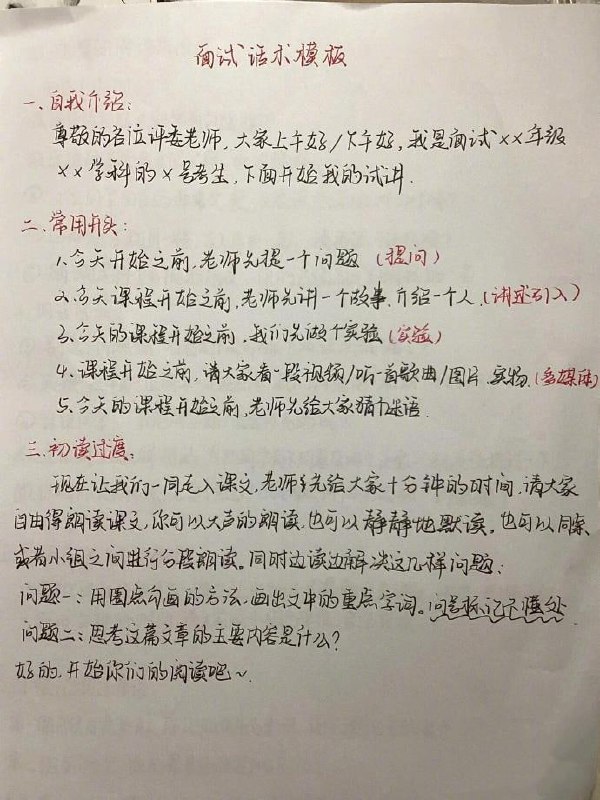 面试话术模板
一、自我介绍：
尊敬的各位评委老师，大家上午好/下午好，我是面试××年级
××学科的×号考生，下面开始我的试讲.
二、常用开头：
1.今天开始之前，老师先提一个问题（提问）
2.今天课程开始之前，老师先讲一个故事，介绍一个人（讲述引入）
3.今天的课程开始之前，我们先做个实验（实验）
4.课程开始之前，请大家看一段视频/听一首歌曲/图片.实物.（多媒体）
5.今天的课程开始之前，老师先给大家猜个谜语.
三、初读过度：
现在让我们一同走入课文，老师先给大家十分钟的时间，请大家
自由得朗读课文，你可以大声的朗读，也可以静静地默读。也可以同桌
或者小组之间进行分段朗读。同时边读边解决这几样问题：
问题一：用圈点勾画的方法，画出文中的重点字词。问号标记不懂处
问题二：思考这篇文章的主要内容是什么？
好的，开始你们的阅读吧~